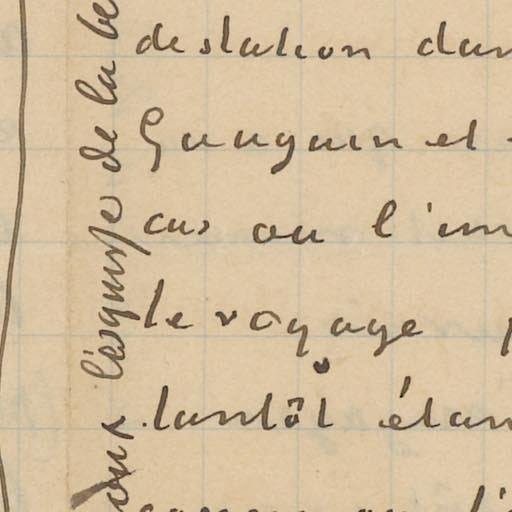 de station dan
Gauguin et
cas ou l'im
le voyage
tantôt étan
l'esquisse de la be